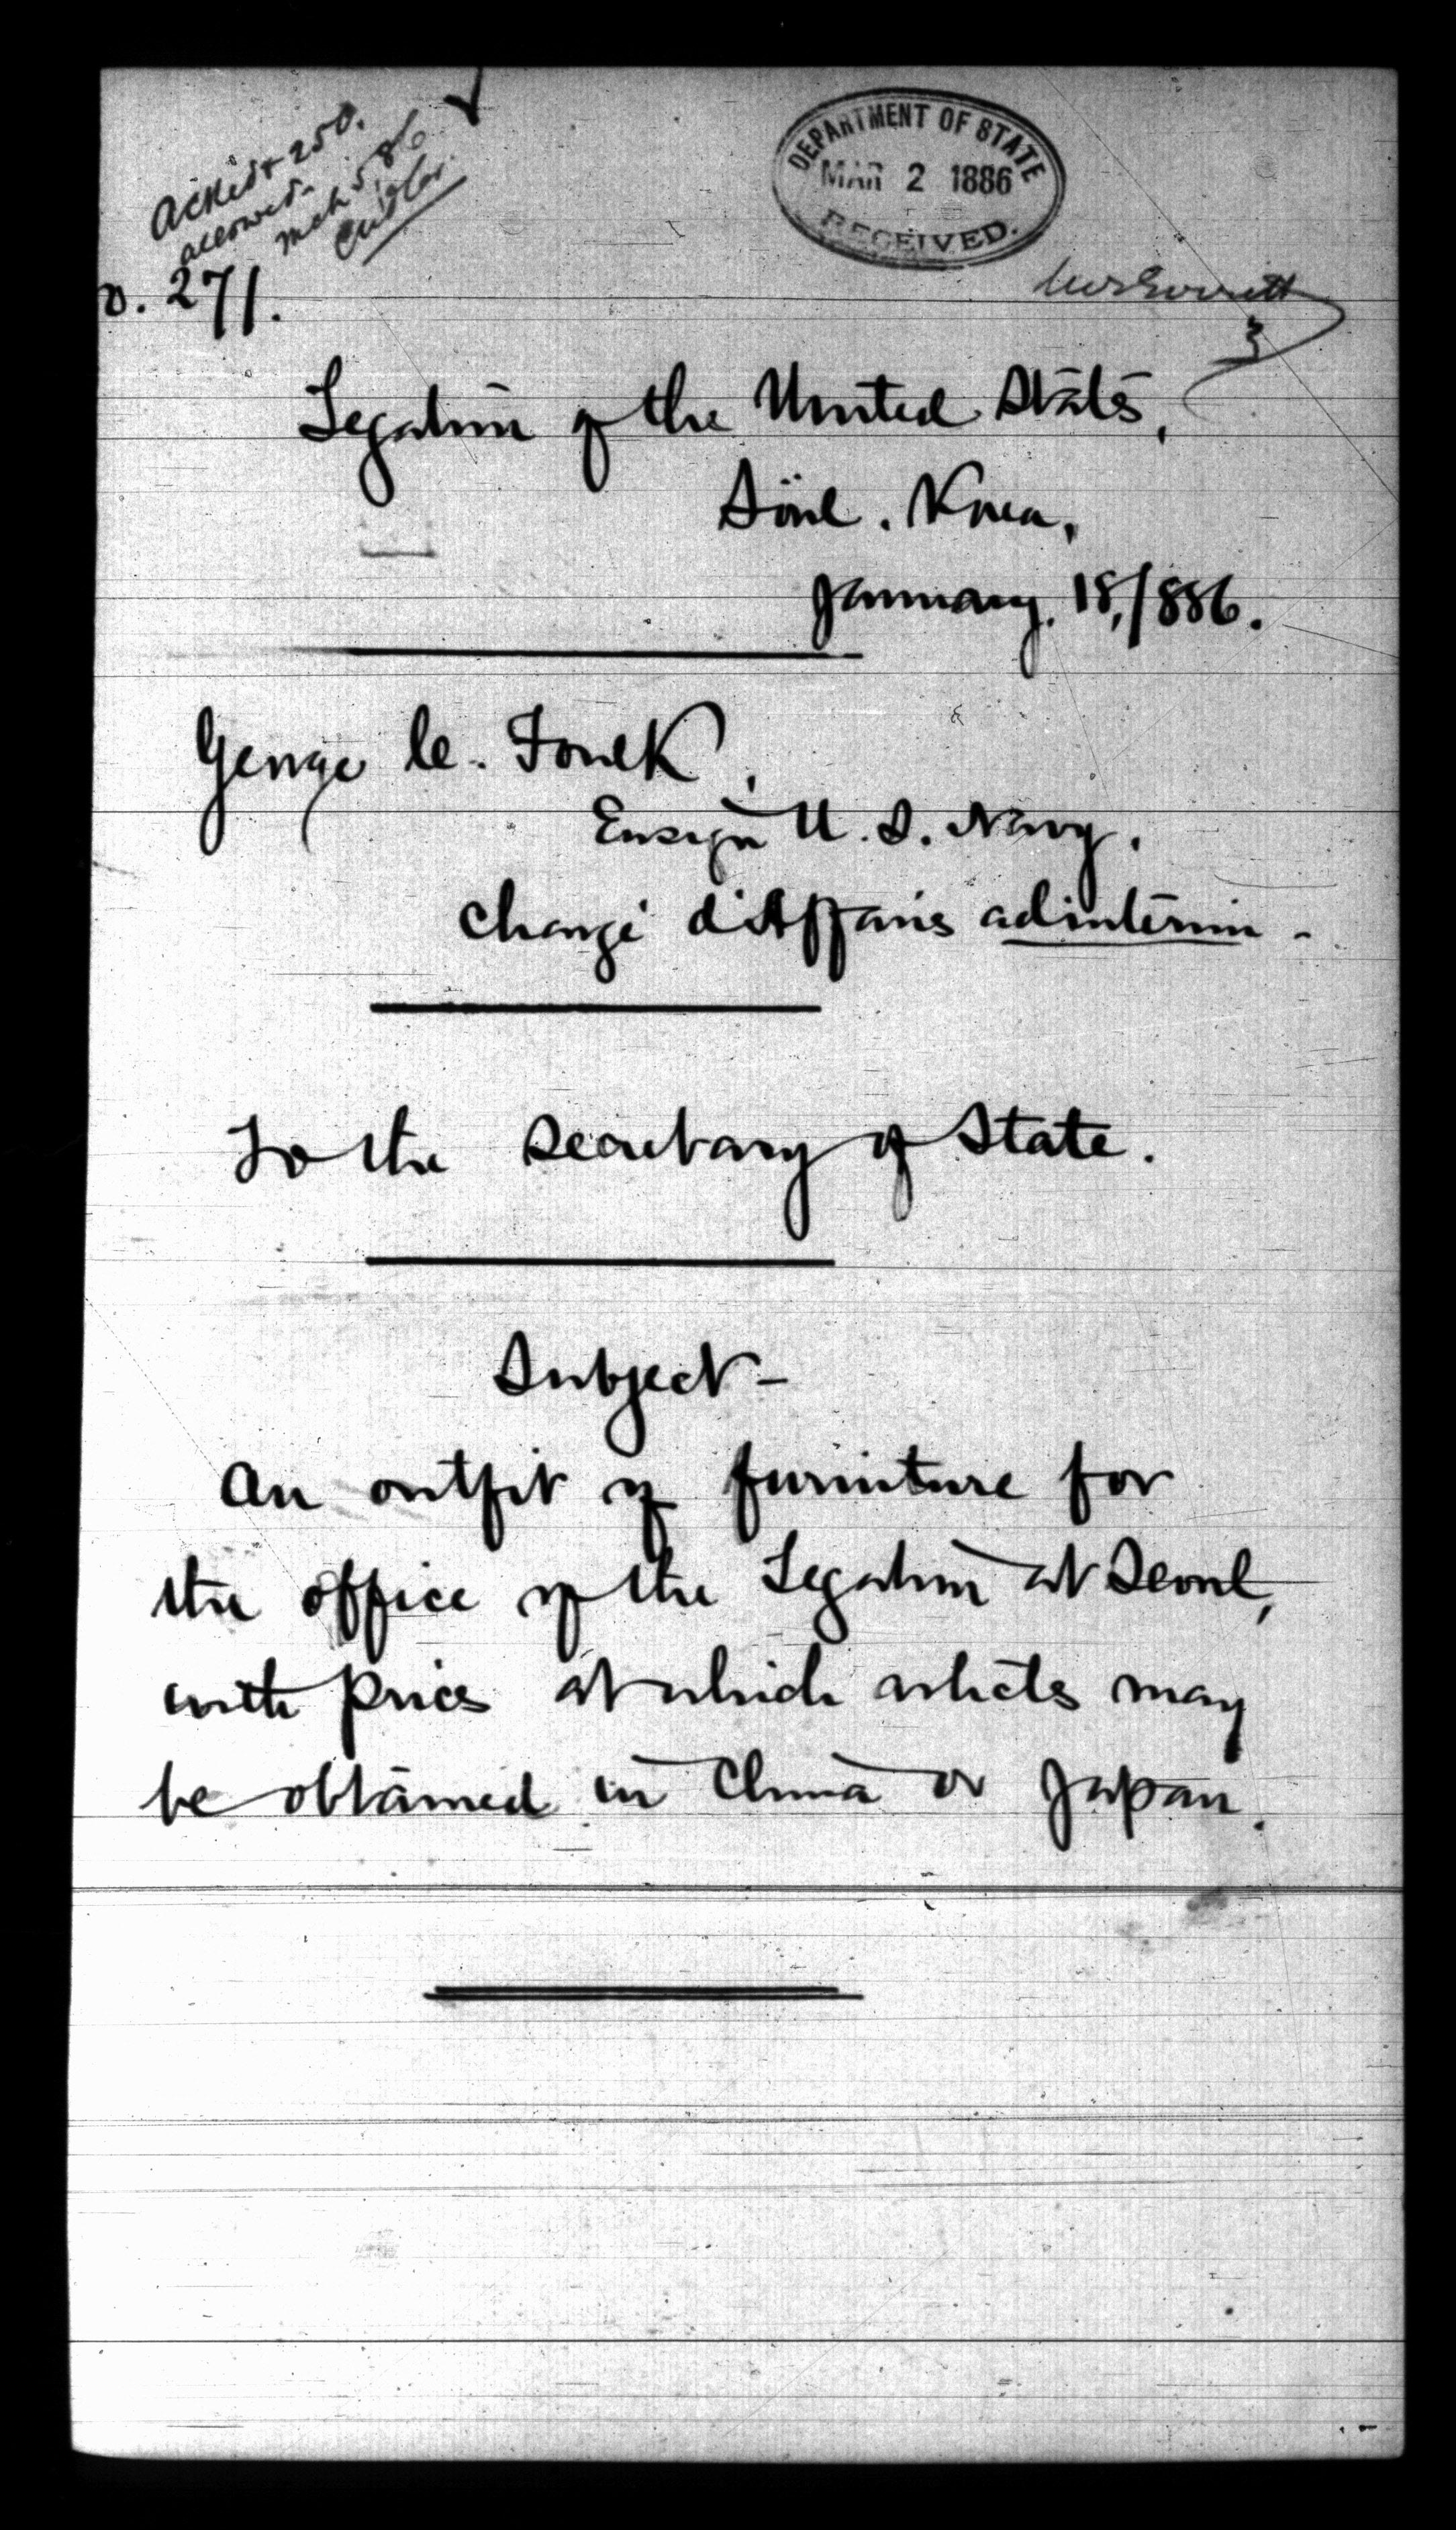 Ack'd & 250.
allowed.
Mch 5 86
DEPARTMENT OF STATE
MAR 2 1886
RECEIVED.
o. 271.
Legation of the United States,
Söul. Korea,
January. 18, 1886.
George C. Foulk,
Ensign U. S. Navy.
Chargé d'Affaires ad interim -
To the Secretary of State.
Subject -
An outfit of furniture for
the office of the Legation at Seoul,
with prices at which articles may
be obtained in China or Japan.